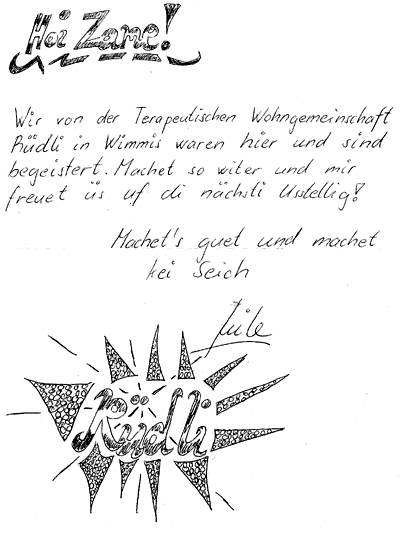 Hoi Zame!
Wir von der Terapeutischen Wohngemeinschaft
Rüdli in Wimmis waren hier und sind
begeistert. Machet so witer und mir
freuet üs uf di nächsti Usstellig!
Machet's guet und machet
kei Seich
Rüdli